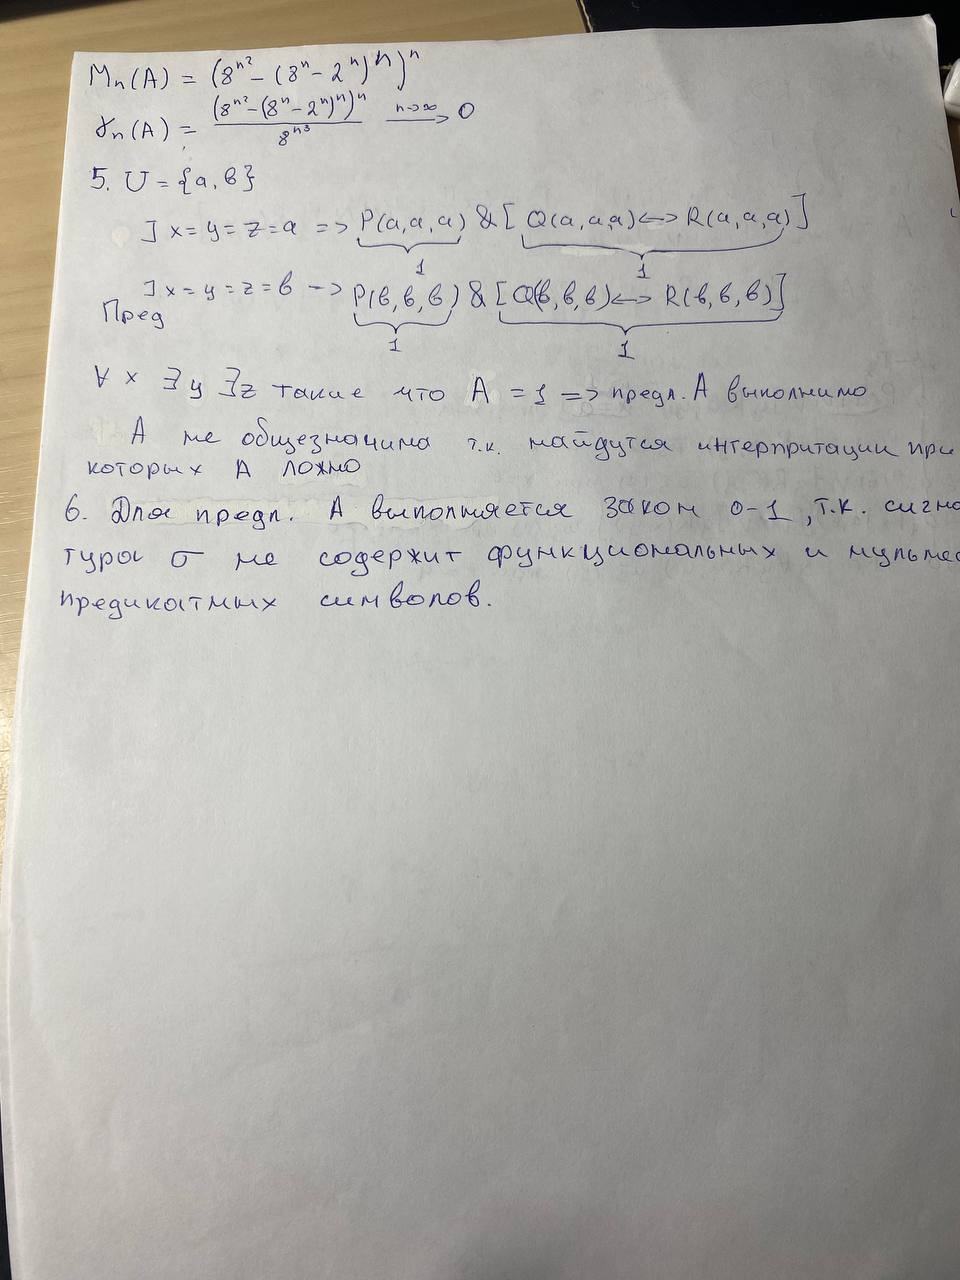 Mn(A) = (8^{n²} - (8^n - 2^n)^n)^n
γn(A) = (8^{n²} - (8^n - 2^n)^n)^n / 8^{n³} n→∞ → 0
5. U = {a, в}
] x = y = z = a => P(a, a, a) & [ Q(a, a, a) <-> R(a, a, a) ]
1 1
] x = y = z = в -> P(в, в, в) & [ Q(в, в, в) <-> R(в, в, в) ]
Пред
1 1
∀ x ∃ y ∃ z такие что A = 1 => предл. A выполнимо
A не общезначима т.к. найдутся интерпритации при
которых A ложно
6. Для предл. A выполняется закон 0-1, т.к. сигна
тура σ не содержит функциональных и нульмес
предикатных символов.